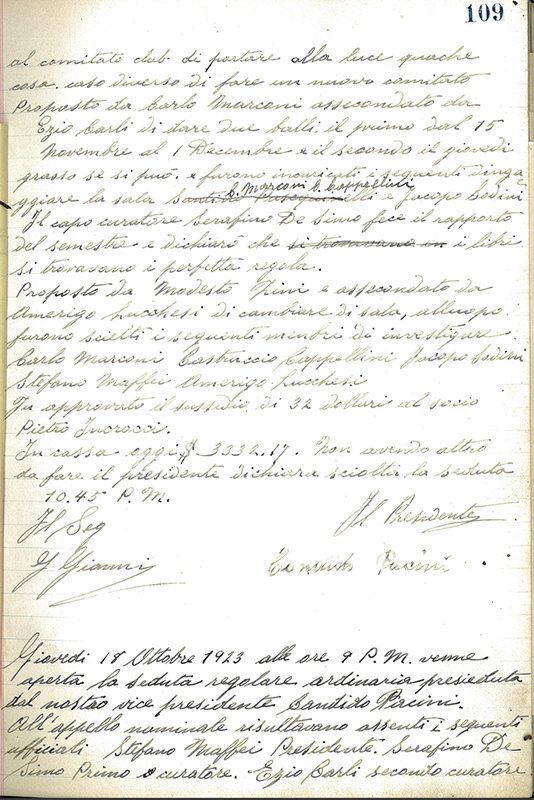 109
al comitato club di portare alla luce quache
cosa. caso diverso di fare un nuovo comitato
Proposto da Carlo Marconi assecondato da
Ezio Carli di dare due balli. il primo dal 15
Novembre al 1 Decembre e il secondo il giovedi
grasso se si può. e furono incaricati i seguenti dinga
C. Marconi C. Cappellini
ggiare la sala elli e Jacopo Sodini
Il capo curatore Serafino De Simo fece il rapporto
del semestre e dichiarò che si trovavano in i libri
si trovavano i perfetta regola.
Proposto da Modesto Nini e assecondato da
Amerigo Lucchesi di cambiare di sala, alluopo
furono scielti i seguenti menbri di investigare
Carlo Marconi Castruccio Cappellini Jacopo Sodini
Stefano Maffei Amerigo Lucchesi
Fu approvato il sussidio di 32 dollari al socio
Pietro Incrocci.
In cassa oggi $ 3332.17. Non avendo altro
da fare il presidente dichiara sciolta la seduta
10.45 P.M.
Il Seg Il Presidente
G Gianni Candido Pacini
Giovedi 18 Ottobre 1923 alle ore 9 P.M. venne
aperta la seduta regolare ordinaria presieduta
dal nostro vice presidente Candido Pacini.
All'appello nominale risultavano assenti i seguenti
ufficiali Stefano Maffei Presidente. Serafino De
Simo Primo curatore. Ezio Carli secondo curatore